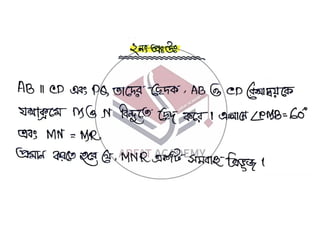 ২নং প্রশ্নের উঃ
AB || CD এবং PQ, তাদের ছেদক, AB ও CD রেখাদ্বয়কে
যথাক্রমে M ও N বিন্দুতে ছেদ করে। এখানে ∠PMB = 60°
এবং MN = MR.
প্রমাণ করতে হবে যে, MNR একটি সমবাহু ত্রিভুজ।